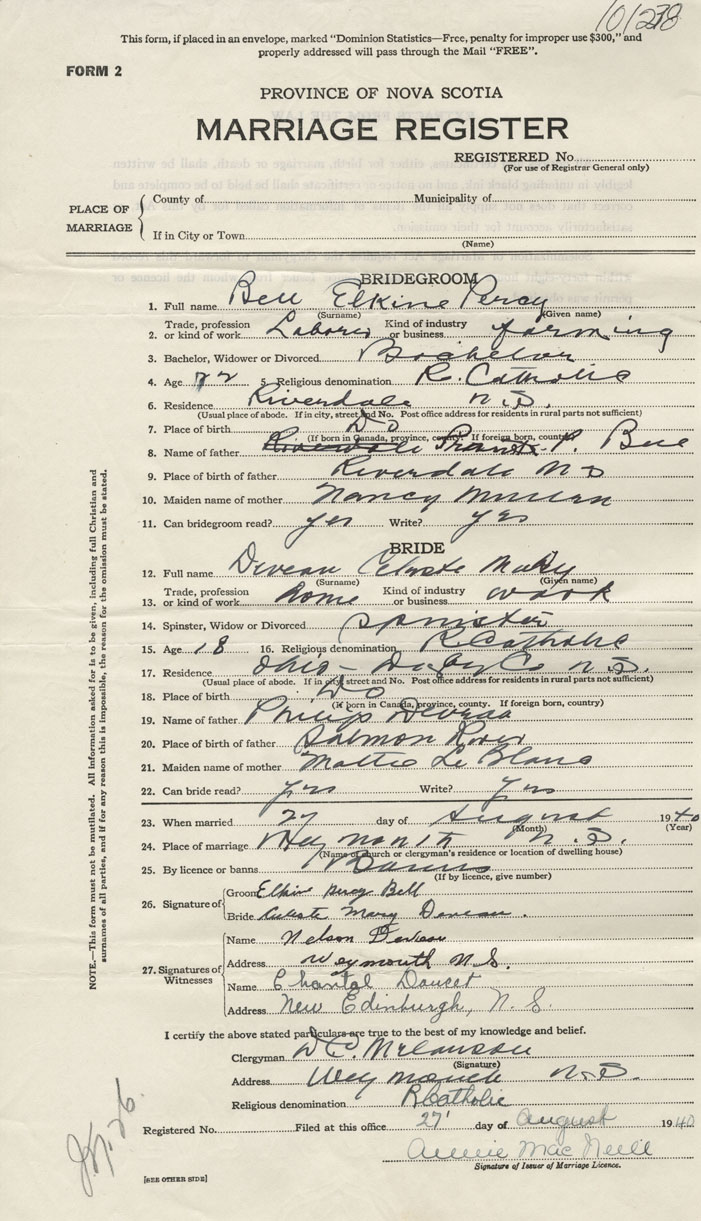 101238
This form, if placed in an envelope, marked "Dominion Statistics—Free, penalty for improper use $300," and
properly addressed will pass through the Mail "FREE".
FORM 2
PROVINCE OF NOVA SCOTIA
MARRIAGE REGISTER
REGISTERED No.
(For use of Registrar General only)
PLACE OF MARRIAGE
County of Municipality of
If in City or Town
(Name)
BRIDEGROOM
1. Full name Bell Elkine Percy
(Surname) (Given name)
2. Trade, profession or kind of work Laborer Kind of industry or business farming
3. Bachelor, Widower or Divorced Bachelor
4. Age 22 5. Religious denomination R. Catholic
6. Residence Riverdale N.S.
(Usual place of abode. If in city, street and No. Post office address for residents in rural parts not sufficient)
7. Place of birth Do
(If born in Canada, province, county. If foreign born, country)
8. Name of father Riverdale P. Bell
9. Place of birth of father Riverdale N S
10. Maiden name of mother Nancy Mullen
11. Can bridegroom read? yes Write? yes
BRIDE
12. Full name Deveau Celeste Mary
(Surname) (Given name)
13. Trade, profession or kind of work home Kind of industry or business work
14. Spinster, Widow or Divorced Spinster
15. Age 18 16. Religious denomination R Catholic
17. Residence Ohio - Digby Co N.S.
(Usual place of abode. If in city, street and No. Post office address for residents in rural parts not sufficient)
18. Place of birth Do
(If born in Canada, province, county. If foreign born, country)
19. Name of father Philip Deveau
20. Place of birth of father Salmon River
21. Maiden name of mother Mattie Le Blanc
22. Can bride read? yes Write? yes
23. When married 27 day of August 1940
(Month) (Year)
24. Place of marriage Weymouth N.S.
(Name of church or clergyman's residence or location of dwelling house)
25. By licence or banns Banns
(If by licence, give number)
26. Signature of
Groom Elkine Percy Bell
Bride Celeste Mary Deveau.
27. Signatures of Witnesses
Name Nelson
Address Weymouth N.S.
Name Chantal Doucet
Address New Edinburgh, N. S.
I certify the above stated particulars are true to the best of my knowledge and belief.
Clergyman
(Signature)
Address Weymouth N.S.
Religious denomination R Catholic
Registered No. Filed at this office 27 day of August 1940
Annie Mac Neill
Signature of Issuer of Marriage Licence.
[SEE OTHER SIDE]
NOTE.—This form must not be mutilated. All information asked for is to be given, including full Christian and
surnames of all parties, and if for any reason this is impossible, the reason for the omission must be stated.